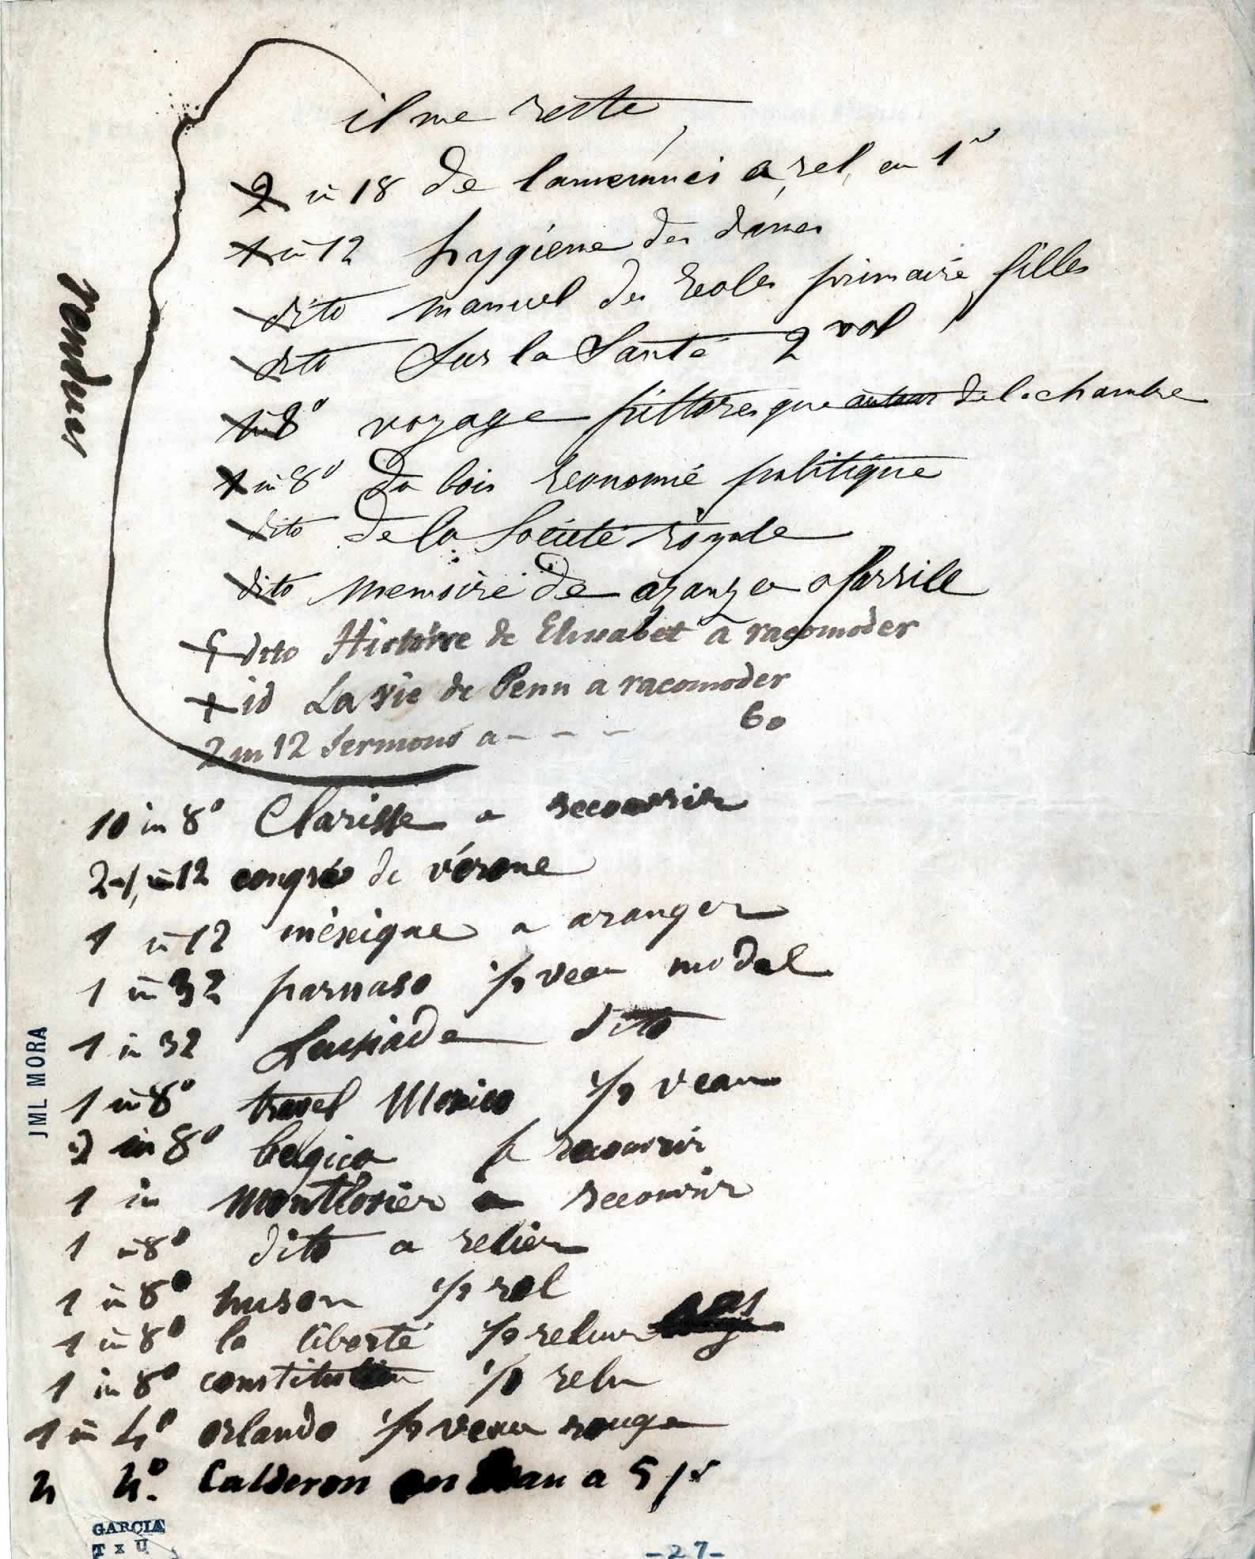 il me reste
2 in 18 de lamennais a rel, en 1 v
1 in 12 hygiene des dames
dito manuel des Ecoles primaire filles
dito Sur la Santé 2 vol
1 in 8° voyage pittoresque autour de la chambre
1 in 8° Du bois Economie politique
dito de la Société royale
dito Memoire de azanza ofarrill
1 dito Histoire de Elisabet a racomoder
1 id La vie de Penn a racomoder
2 in 12 Sermons a - - - 60
rendues
10 in 8° Clarisse a recouvrir
2 in 12 congrés de vérone
1 in 12 méxique a aranger
1 in 32 parnaso ½ veau model
1 in 32 Lusiade dito
1 in 8° travel Mexico ½ veau
2 in 8° belgica a recouvrir
1 in Montlosier a recouvrir
1 in 8° dito a relier
1 in 8° ½ rel
1 in 8° la liberté ½ reliure
1 in 8° constitution ½ reliu
1 in 4° orlando ½ veau rouge
4 4°. Calderon en veau a 5 fr
JML MORA
GARCIA
T x U
-27-